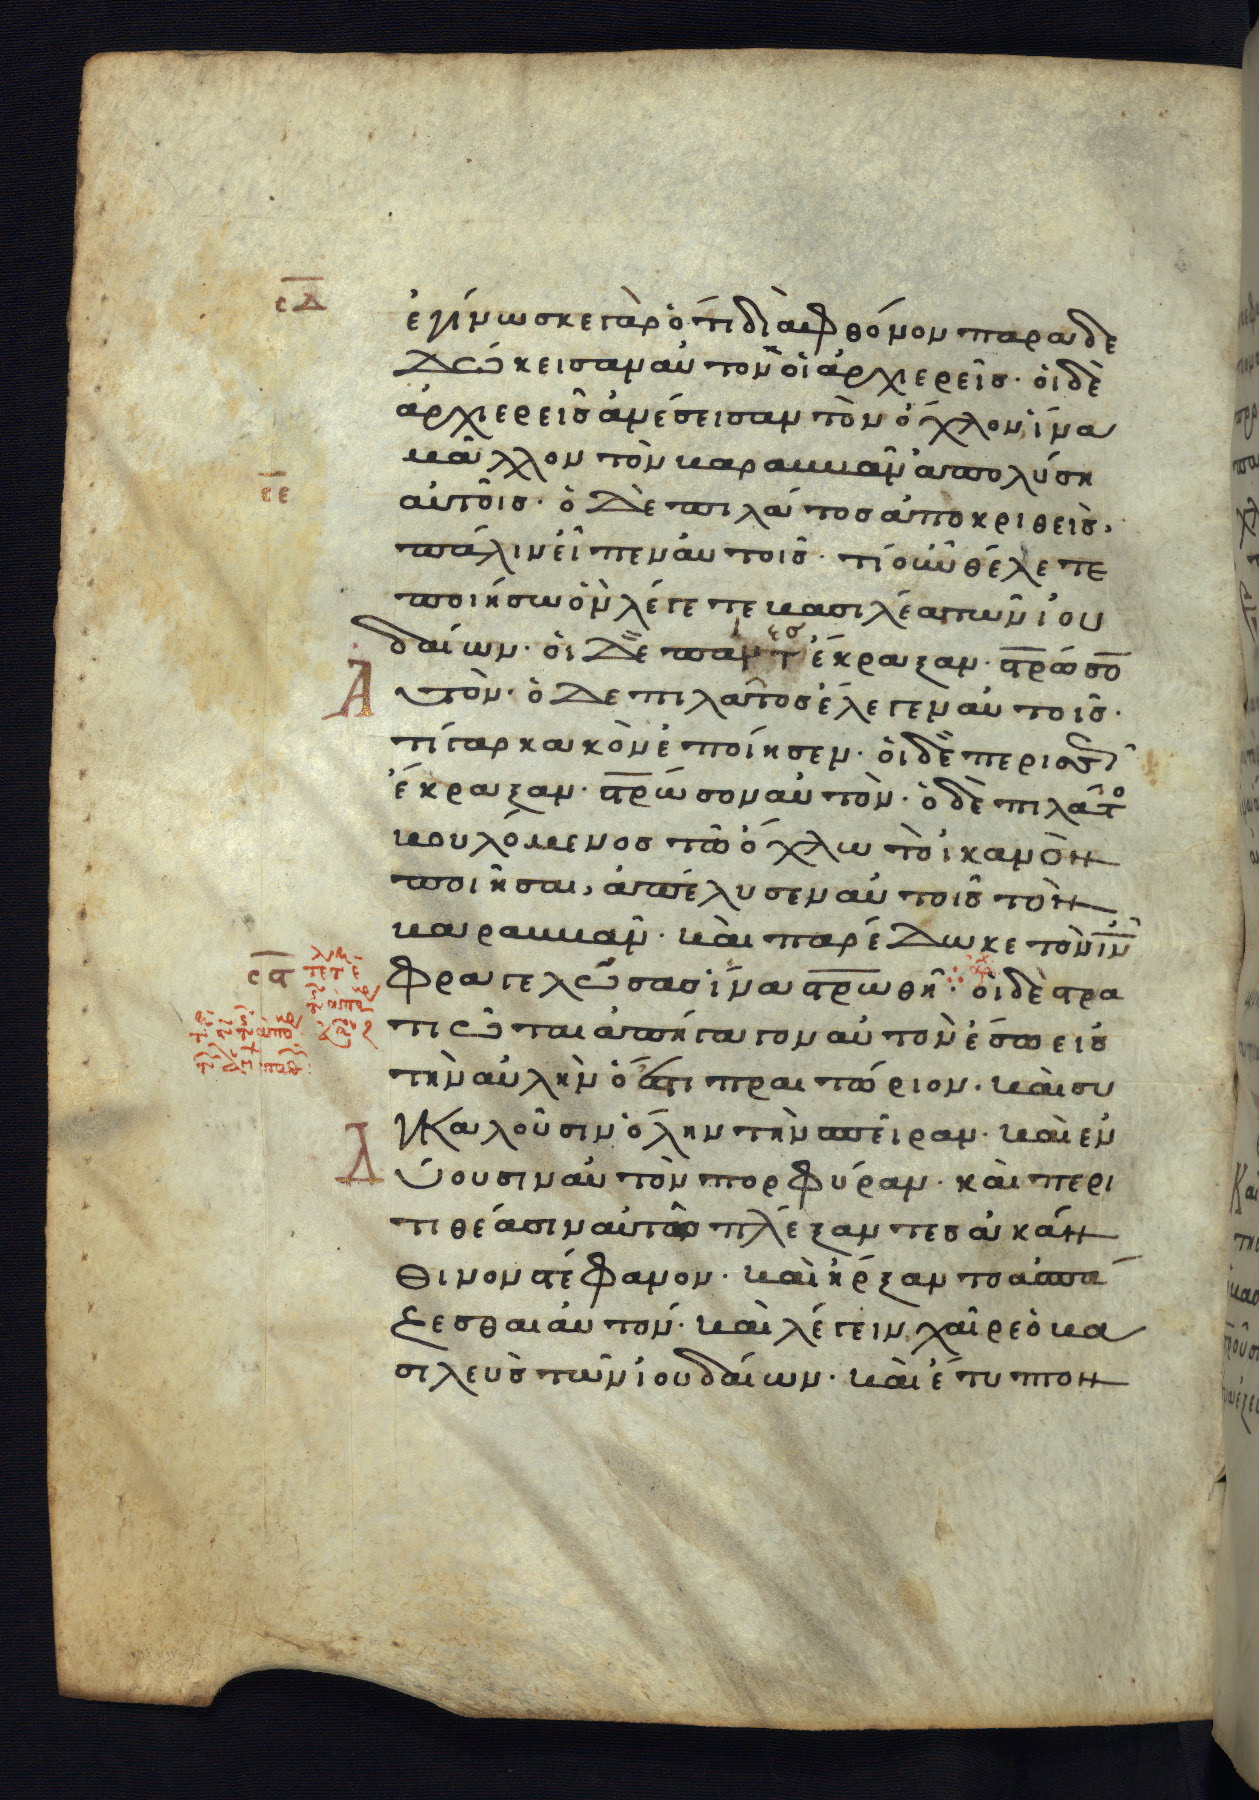 σδ
ἐγίνωσκε γὰρ ὅτι διὰ φθόνον παραδε
δώκεισαν αὐτον οἱ ἀρχιερεῖς· οἱ δὲ
ἀρχιερεῖς ἀνέσεισαν τὸν ὄχλον ἵνα
μᾶλλον τὸν βαραββᾶν ἀπολύση
σε
αὐτοῖς· ὁ δὲ πιλάτος ἀποκριθεὶς,
πάλιν εἶπεν αὐτοῖς· τί οὖν θέλετε
ποιήσω ὃν λέγετε βασιλέα τῶν ἰου
δαίων· οἱ δὲ παντες ἔκραξαν· στρωσο
Α
υτὸν· ὁ δὲ πιλᾶτος ἔλεγεν αὐτοῖς·
τί γαρ κακὸν ἐποίησεν· οἱ δὲ περισσ
ἔκραξαν· στρώσον αὐτὸν· ὁ δὲ πιλᾶτο
βουλόμενος τῶ ὄχλω τὸ ἱκανὸν
ποιῆσαι, ἀπέλυσεν αὐτοῖς τὸν
βαραββᾶν· καὶ παρέδωκε τὸν ιν
σϛ
φραγελώσας ἵνα στρωθῆ· οἱ δὲ στρα
τιῶται ἀπήγαγον αὐτὸν ἔσω εἰς
τὴν αὐλὴν ὅ ἐστι πραιτώριον· καὶ συ
γκαλοῦσιν ὅλην τὴν σπεῖραν· καὶ ἐν
Δ
ύουσιν αὐτὸν πορφύραν· καὶ περι
τιθέασιν αὐτῶ πλέξαντες ἀκάν
θινον στέφανον· καὶ ἤρξαντο ἀσπά
ζεσθαι αὐτόν· καὶ λέγειν χαῖρε ὁ βα
σιλεὺς τῶν ἰουδαίων· καὶ ἔτυπτον